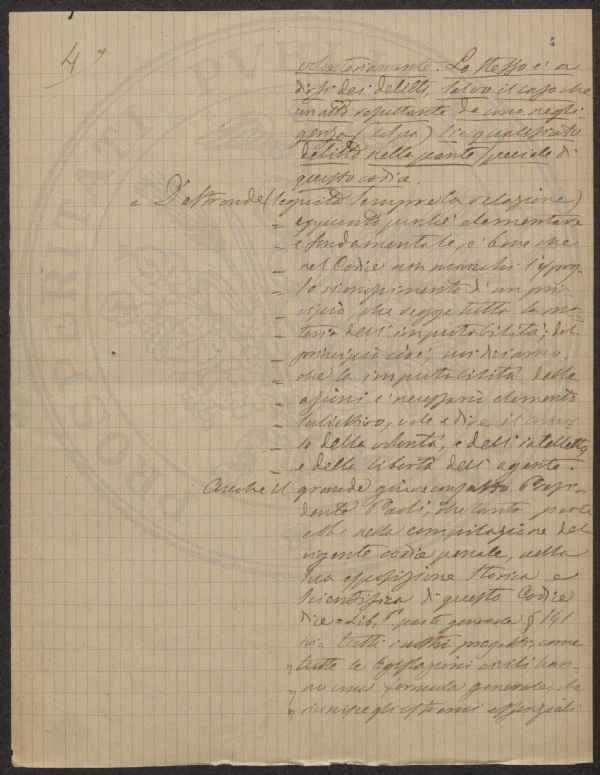 4°
volontariamente. Lo stesso è a
dirsi dei delitti, salvo il caso che
un atto risultante da una negli-
genza (colpa) sia qualificato
delitto nella parte speciale di
questo codice.
= D'altronde (seguito sempre la relazione)
= appunto perchè elementare
= e fondamentale, è bene che
= nel Codice non manchi l'espres-
= di un prin-
= cipio, che regge tutta la ma-
= teria dell'imputabilità; del
= principio cioè, noi diciamo,
= che la imputabilità delle
= azioni è necessario elemento
= subiettivo, vale a dire il concor-
= so della volontà, e dell'intelletto
= e della libertà dell'agente.
Anche il grande giureconsulto Presi-
dente Paoli, che tanta parte
ebbe nella compilazione del
vigente codice penale, nella
sua esposizione storica e
scientifica di questo Codice
dice = Lib. 1° parte generale § 141
ivi = tutti i nostri progetti, come
" tutte le legislazioni civili han-
" no una formula generale che
" riunisce gli estremi essenziali
PROSPERITATI PVBLICAE